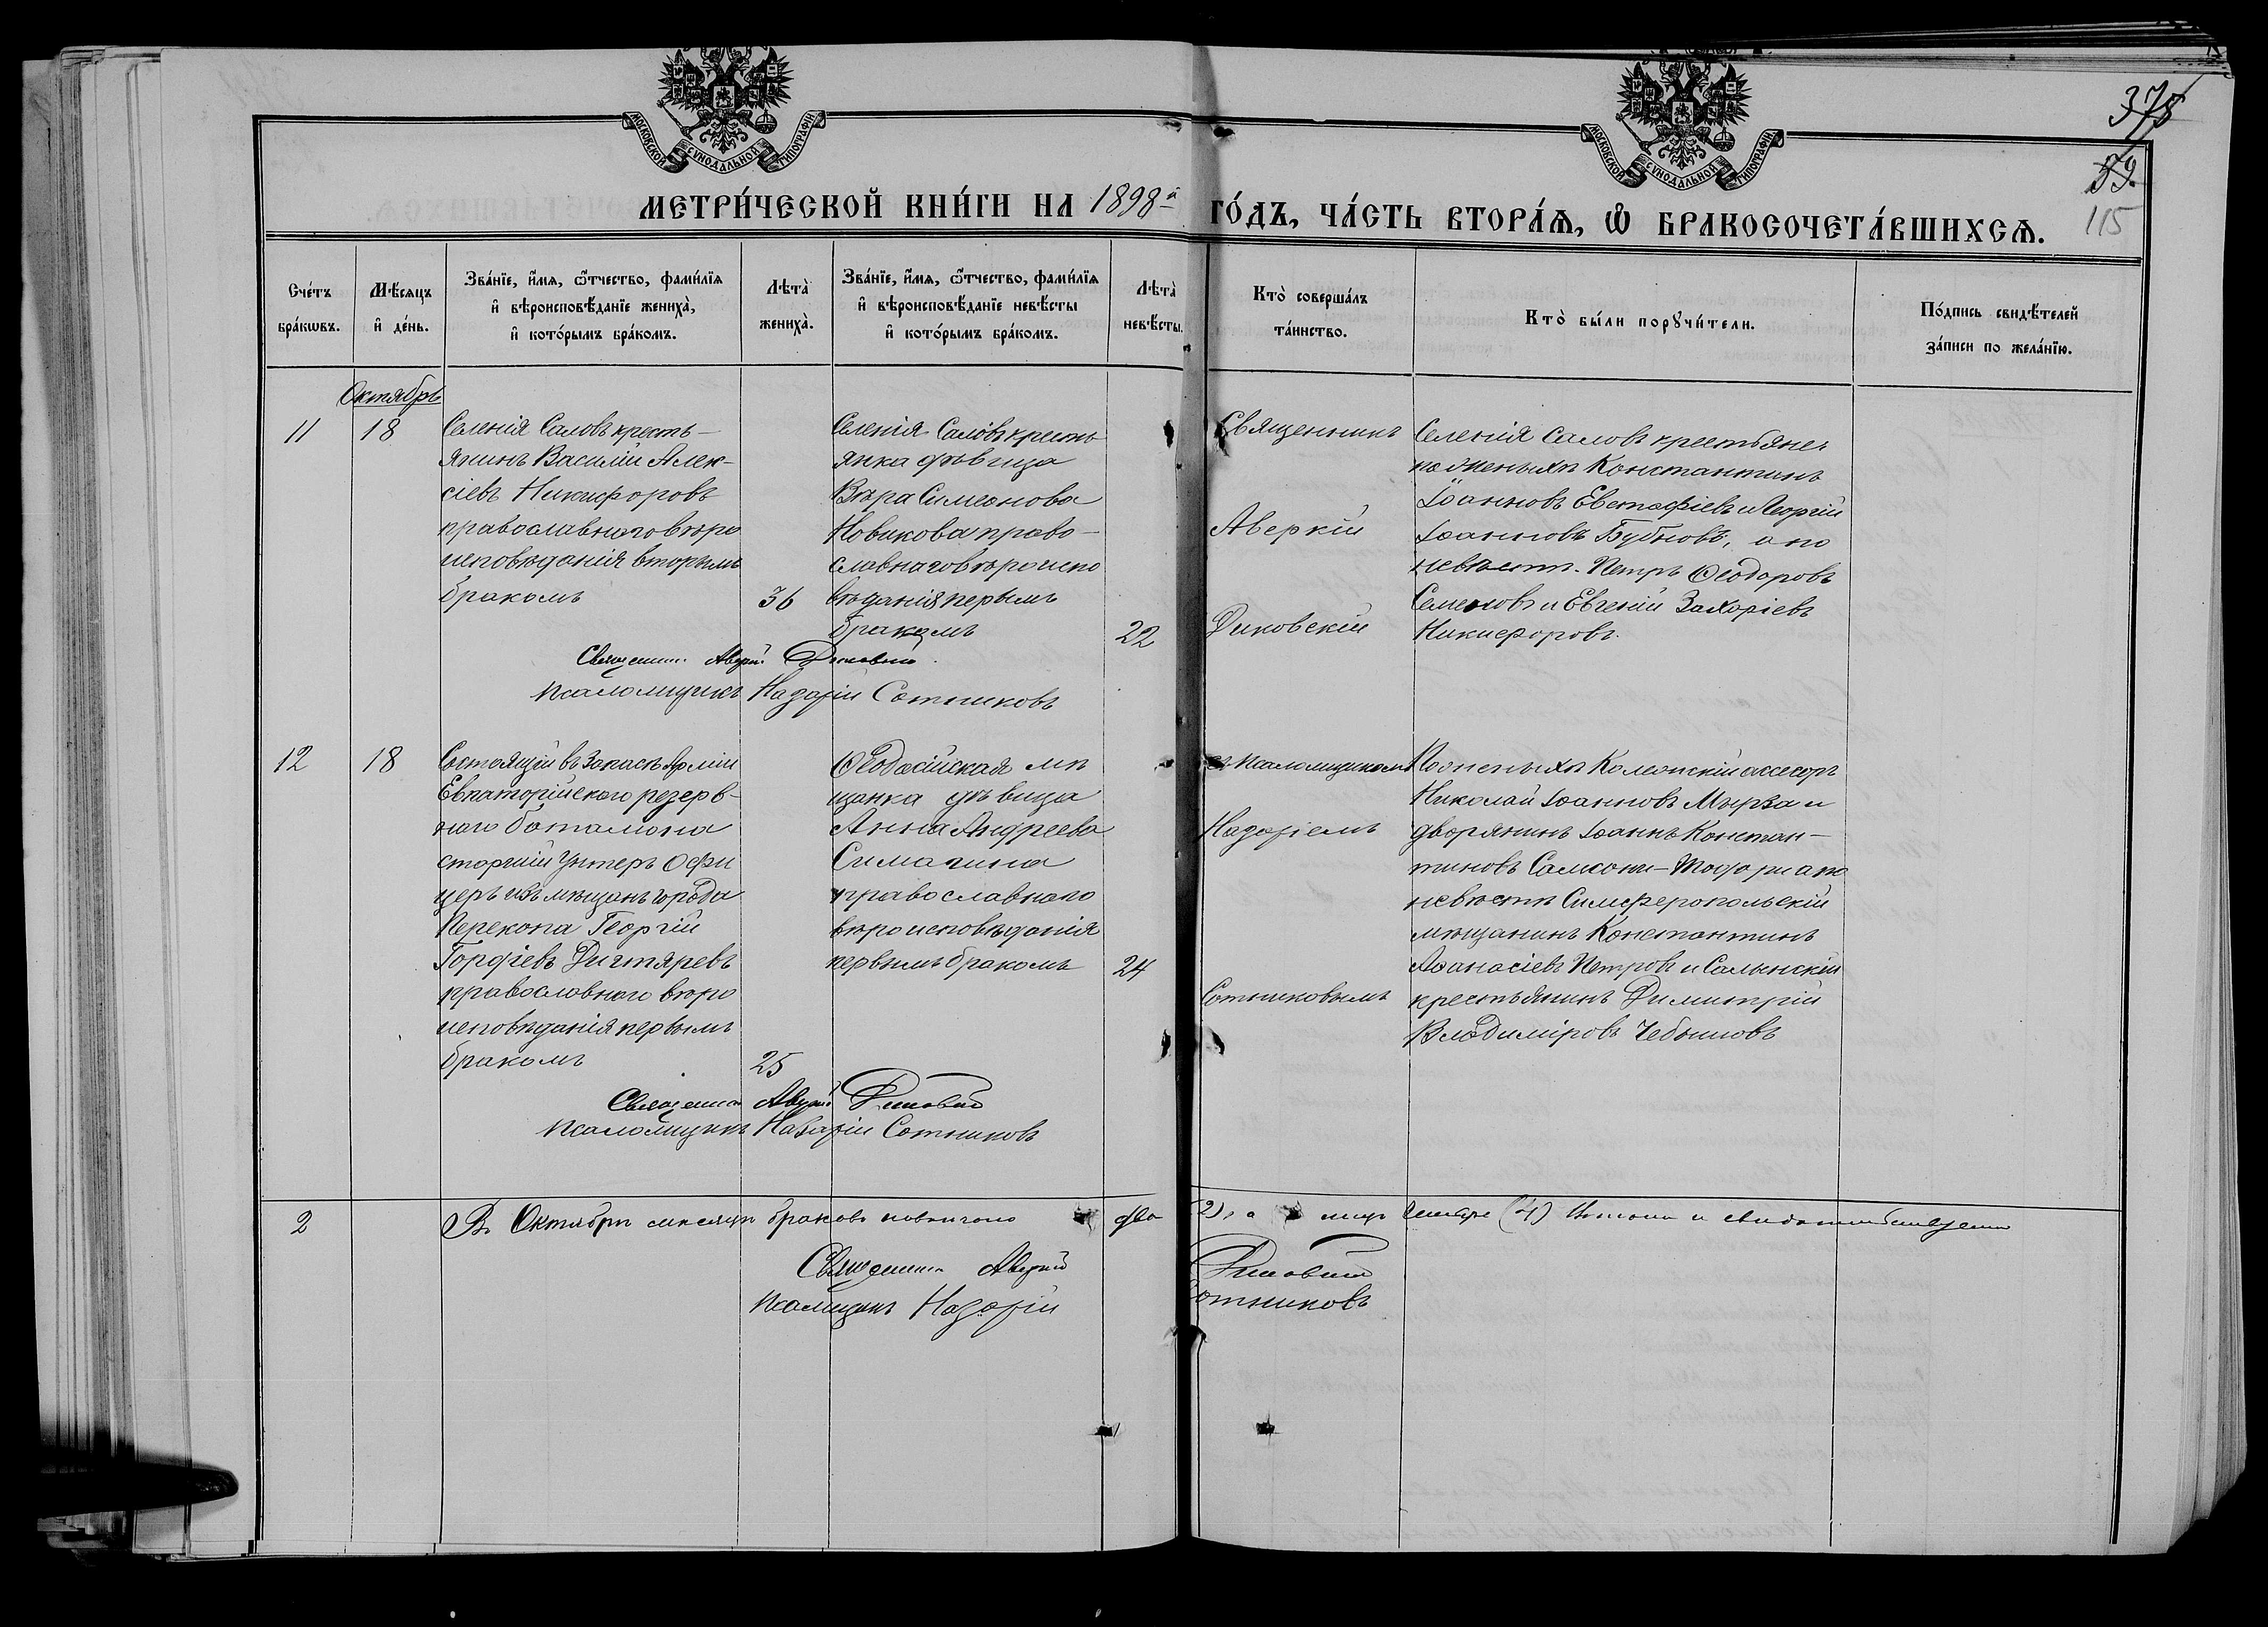 МОСКОВСКОЙ СѴНОДАЛЬНОЙ ТИПОГРАФІИ
МОСКОВСКОЙ СѴНОДАЛЬНОЙ ТИПОГРАФІИ
375
39.
115
МЕТРИ́ЧЕСКОЙ КНИ́ГИ НА 1898-й ГО́ДЪ, ЧА́СТЬ ВТОРА́Ѧ, Ѽ БРАКОСОЧЕТА́ВШИХСѦ.
Сче́тъ
бра́кѡвъ.
Мѣ́сѧцъ
и҆ де́нь.
Зва́нїе, и҆́мѧ, ѻ҆́тчество, фами́лїѧ
и҆ вѣроисповѣ́данїе жениха̀,
и҆ кото́рымъ бра́комъ.
Лѣта̀
жениха̀.
Зва́нїе, и҆́мѧ, ѻ҆́тчество, фами́лїѧ
и҆ вѣроисповѣ́данїе невѣ́сты
и҆ кото́рымъ бра́комъ.
Лѣта̀
невѣ́сты.
Кто̀ соверша́лъ
та́инство.
Кто̀ бы́ли порꙋчи́тели.
По́дпись свидѣ́телей
за́писи по жела́нїю.
Октябрь
11
18
Селенія Саловъ кресть-
янинъ Василій Алек-
сіевъ Никифоровъ
православнаго вѣро
исповѣданія вторымъ
бракомъ
36
Селенія Саловъ кресть
янка дѣвица
Вѣра Симеонова
Новикова право-
славнаго вѣроиспо
вѣданія первымъ
бракомъ
22
Священникъ
Аверкій
Диковскій
Селенія Саловъ крестьяне:
по женихѣ Константинъ
Іоанновъ Евстафіевъ и Георгій
Іоанновъ Бубновъ, а по
невѣстѣ. Петръ Ѳеодоровъ
Семеновъ и Евгеній Захаріевъ
Никифоровъ.
Священникъ Аверкій Диковскій.
Псаломщикъ Назарій Сотниковъ
12
18
Состоящій въ Запасѣ Арміи
Евпаторійскаго резерв-
наго баталіона
старшій Унтеръ Офи
церъ изъ мѣщанъ города
Перекопа Георгій
Гордіевъ Дигтяревъ
православнаго вѣро
исповѣданія первымъ
бракомъ
25
Ѳеодосійская мѣ
щанка дѣвица
Анна Андреева
Симагина
православнаго
вѣроисповѣданія
первымъ бракомъ
24
съ Псаломщикомъ
Назаріемъ
Сотниковымъ
По женихѣ Колежскій ассесоръ
Николай Іоанновъ Мырза и
дворянинъ Іоаннъ Констан-
тиновъ а по
невѣстѣ Симферопольскій
мѣщанинъ Константинъ
Аѳанасіевъ Петровъ и Салынскій
крестьянинъ Димитрій
Владиміровъ Чебыновъ
Священникъ Аверкій Диковскій
Псаломщикъ Назарій Сотниковъ
2
Въ Октябрѣ мѣсяцѣ браковъ повѣнчано два (2), а лицъ четыре (4)
Священникъ Аверкій Диковскій
Псаломщикъ Назарій Сотниковъ